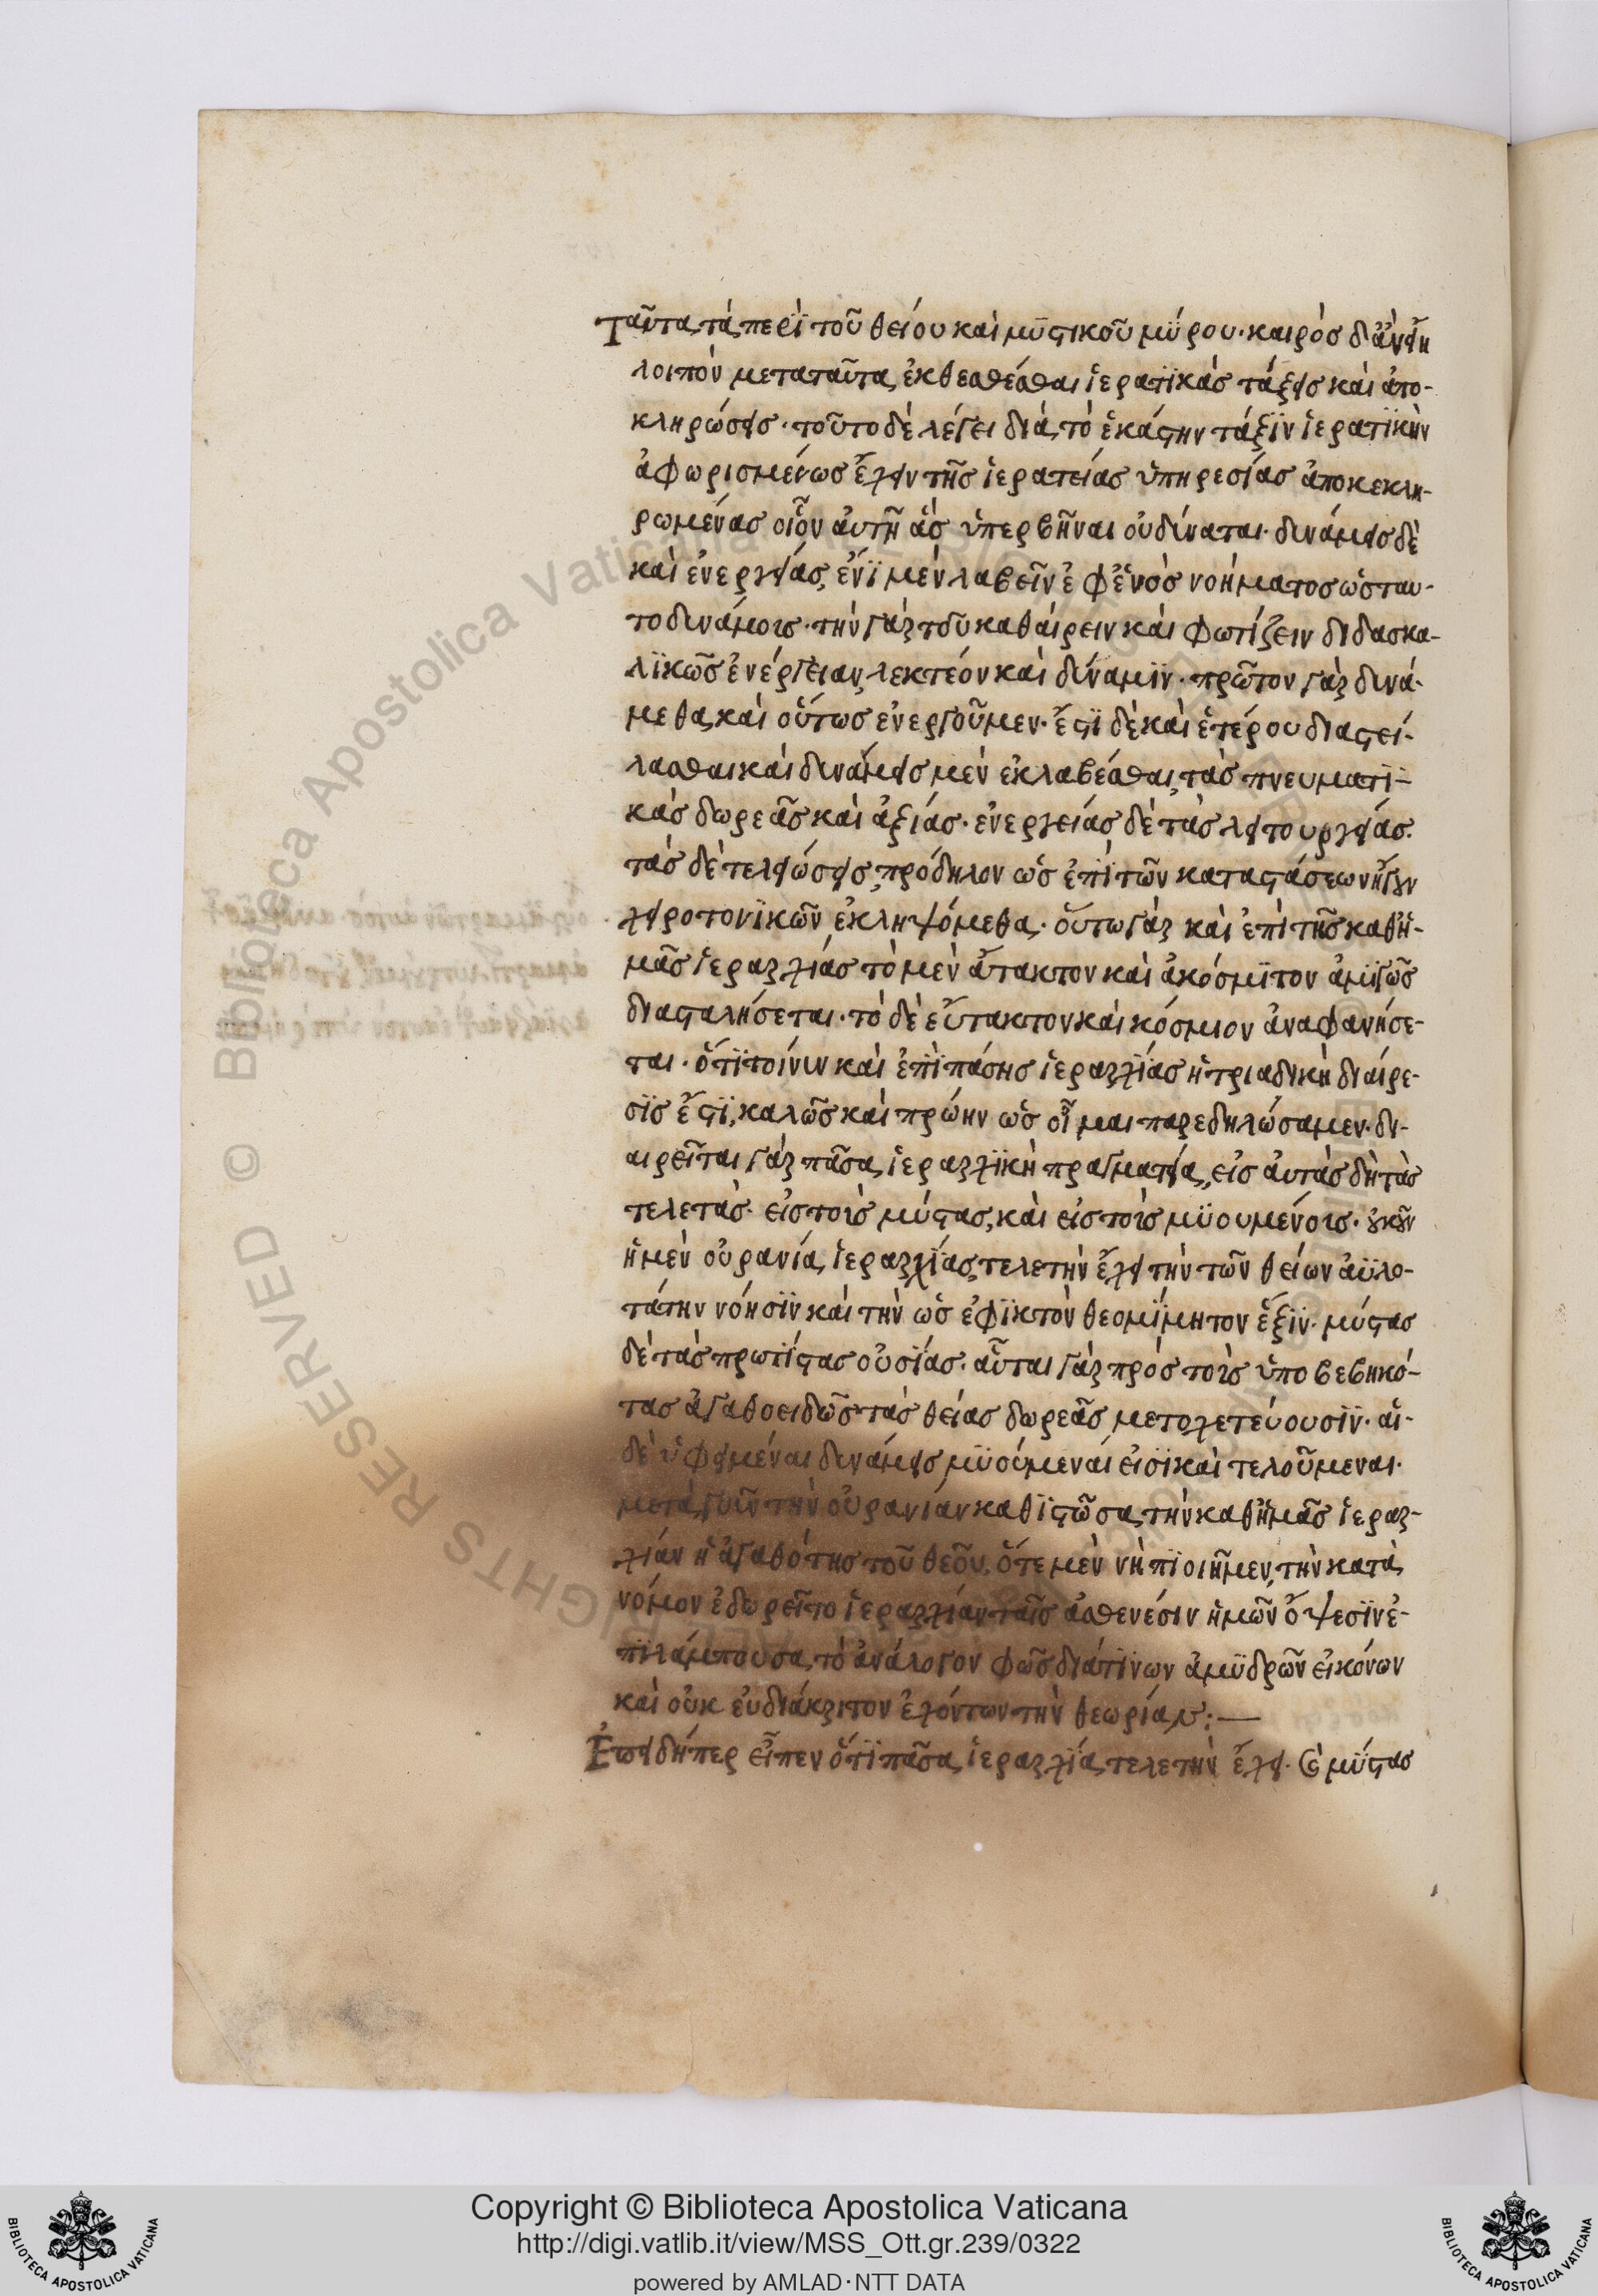 Ταῦτα τὰ περὶ τοῦ θείου καὶ μυστικοῦ μύρου· καιρὸσ δ' ἂν εἴη
λοιπὸν μετα ταῦτα ἐκθέσθέσθαι ἱερατικὰσ τάξεισ καὶ ἀπο-
κληρώσεισ· τοῦτο δὲ λέγει διὰ τὸ ἑκάστην τάξιν ἱερατικὴν
ἀφωρισμένωσ ἔχειν τῆσ ἱερατείασ ὑπηρεσίασ ἀποκεκλη-
ρωμένασ οἷον αὐτῆ ἃσ ὑπερβῆναι οὐ δύναται· δυνάμεισ δὲ
καὶ ἐνεργείασ, ἔνι μὲν λαβεῖν ἐφ' ἑνὸσ νοήματοσ ὡσ ταυ-
τοδυνάμοισ· τὴν γὰρ τοῦ καθαίρειν καὶ φωτίζειν διδασκα-
λικῶσ ἐνέργειαν, λεκτέον καὶ δύναμιν· πρῶτον γὰρ δυνά-
μεθα καὶ οὕτωσ ἐνεργοῦμεν· ἔστι δὲ καὶ ἑτέρου διαστεί-
λασθαι καὶ δυνάμεισ μὲν ἐκλαβέσθαι, τὰσ πνευματι-
κὰσ δωρεὰσ καὶ ἀξίασ· ἐνεργείασ δὲ τὰσ λειτουργείασ.
τὰσ δὲ τελειώσεισ, πρόδηλον ὡσ ἐπὶ τῶν καταστάσεων ἤγουν
χειροτονικῶν ἐκληψόμεθα· οὕτω γὰρ καὶ ἐπὶ τῆσ καθ' ἡ-
μᾶσ ἱεραρχίασ τὸ μὲν ἄτακτον καὶ ἀκόσμιτον ἀμιγῶσ
διασταλήσεται· τὸ δὲ εὔτακτον καὶ κόσμιον ἀναφανήσε-
ται· ὅτι τοίνυν καὶ ἐπὶ πάσησ ἱεραρχίασ ἡ τριαδικὴ διαίρε-
σισ ἔστι, καλῶσ καὶ πρώην ὡσ οἶμαι παρεδηλώσαμεν· δι-
αιρεῖται γὰρ πᾶσα ἱεραρχικὴ πραγματεία, εἰσ αὐτὰσ δὴ τὰσ
τελετὰσ· εἰσ τοὺσ μύστασ, καὶ εἰσ τοὺσ μυουμένουσ· οὐκοῦν
ἡ μὲν οὐρανία ἱεραρχίασ, τελετὴν ἔχει τὴν τῶν θείων ἀϋλο-
τάτην νόησιν καὶ τὴν ὡσ ἐφικτὸν θεομίμητον ἕξιν· μύστασ
δὲ τὰσ πρωτίστασ οὐσίασ· αὗται γὰρ πρὸσ τοὺσ ὑποβεβηκό-
τασ ἀγαθοειδῶσ τὰσ θείασ δωρεὰσ μετοχετεύουσιν· αἱ
δὲ ὑφειμέναι δυνάμεισ μυούμεναί εἰσι καὶ τελούμεναι.
μετὰ γοῦν τὴν οὐρανίαν καθιστῶσα τὴν καθ' ἡμᾶσ ἱεραρ-
χίαν ἡ ἀγαθότησ τοῦ θεοῦ, ὅτε μὲν νήπιοι ἦμεν, τὴν κατὰ
νόμον ἐδωρεῖτο ἱεραρχίαν ταῖσ ἀσθενέσιν ἡμῶν ὄψεσιν ἐ-
πιλάμπουσα τὸ ἀνάλογον φῶσ διά τινων ἀμυδρῶν εἰκόνων
καὶ οὐκ εὐδιάκριτον ἐχόντων τὴν θεωρίαν:—
Ἐπειδήπερ εἶπεν ὅτι πᾶσα ἱεραρχία τελετὴν ἔχει· καὶ μύστασ
Copyright © Biblioteca Apostolica Vaticana
http://digi.vatlib.it/view/MSS_Ott.gr.239/0322
powered by AMLAD·NTT DATA
BIBLIOTECA APOSTOLICA VATICANA
BIBLIOTECA APOSTOLICA VATICANA